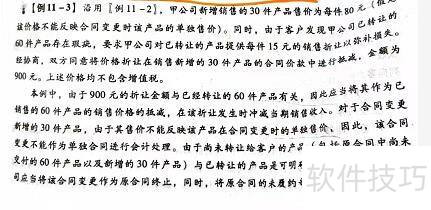 [例11-3] 沿用 [例 11-2],甲公司新增销售的30件产品售价为每件80元(假定
该价格不能反映合同变更时该产品的单独售价)。同时,由于客户发现甲公司已转让的
60件产品存在瑕疵,要求甲公司对已转让的产品提供每件15元的销售折让以弥补损失。
经协商,双方同意将价格折让在销售新增的30件产品的合同价款中进行抵减,金额为
900元。上述价格均不包含增值税。
本例中,由于900元的折让金额与已经转让的60件产品有关,因此应当将其作为已
销售的60件产品的销售价格的抵减,在该折让发生时冲减当期销售收入。对于合同变更
新增的30件产品,由于其售价不能反映该产品在合同变更时的单独售价,因此,该合同
变更不能作为单独合同进行会计处理。由于尚未转让给客户的产品(包括原合同中尚未
交付的60件产品以及新增的30件产品)与已转让的产品是可明
司应当将该合同变更作为原合同终止,同时,将原合同的未履约
软件技巧